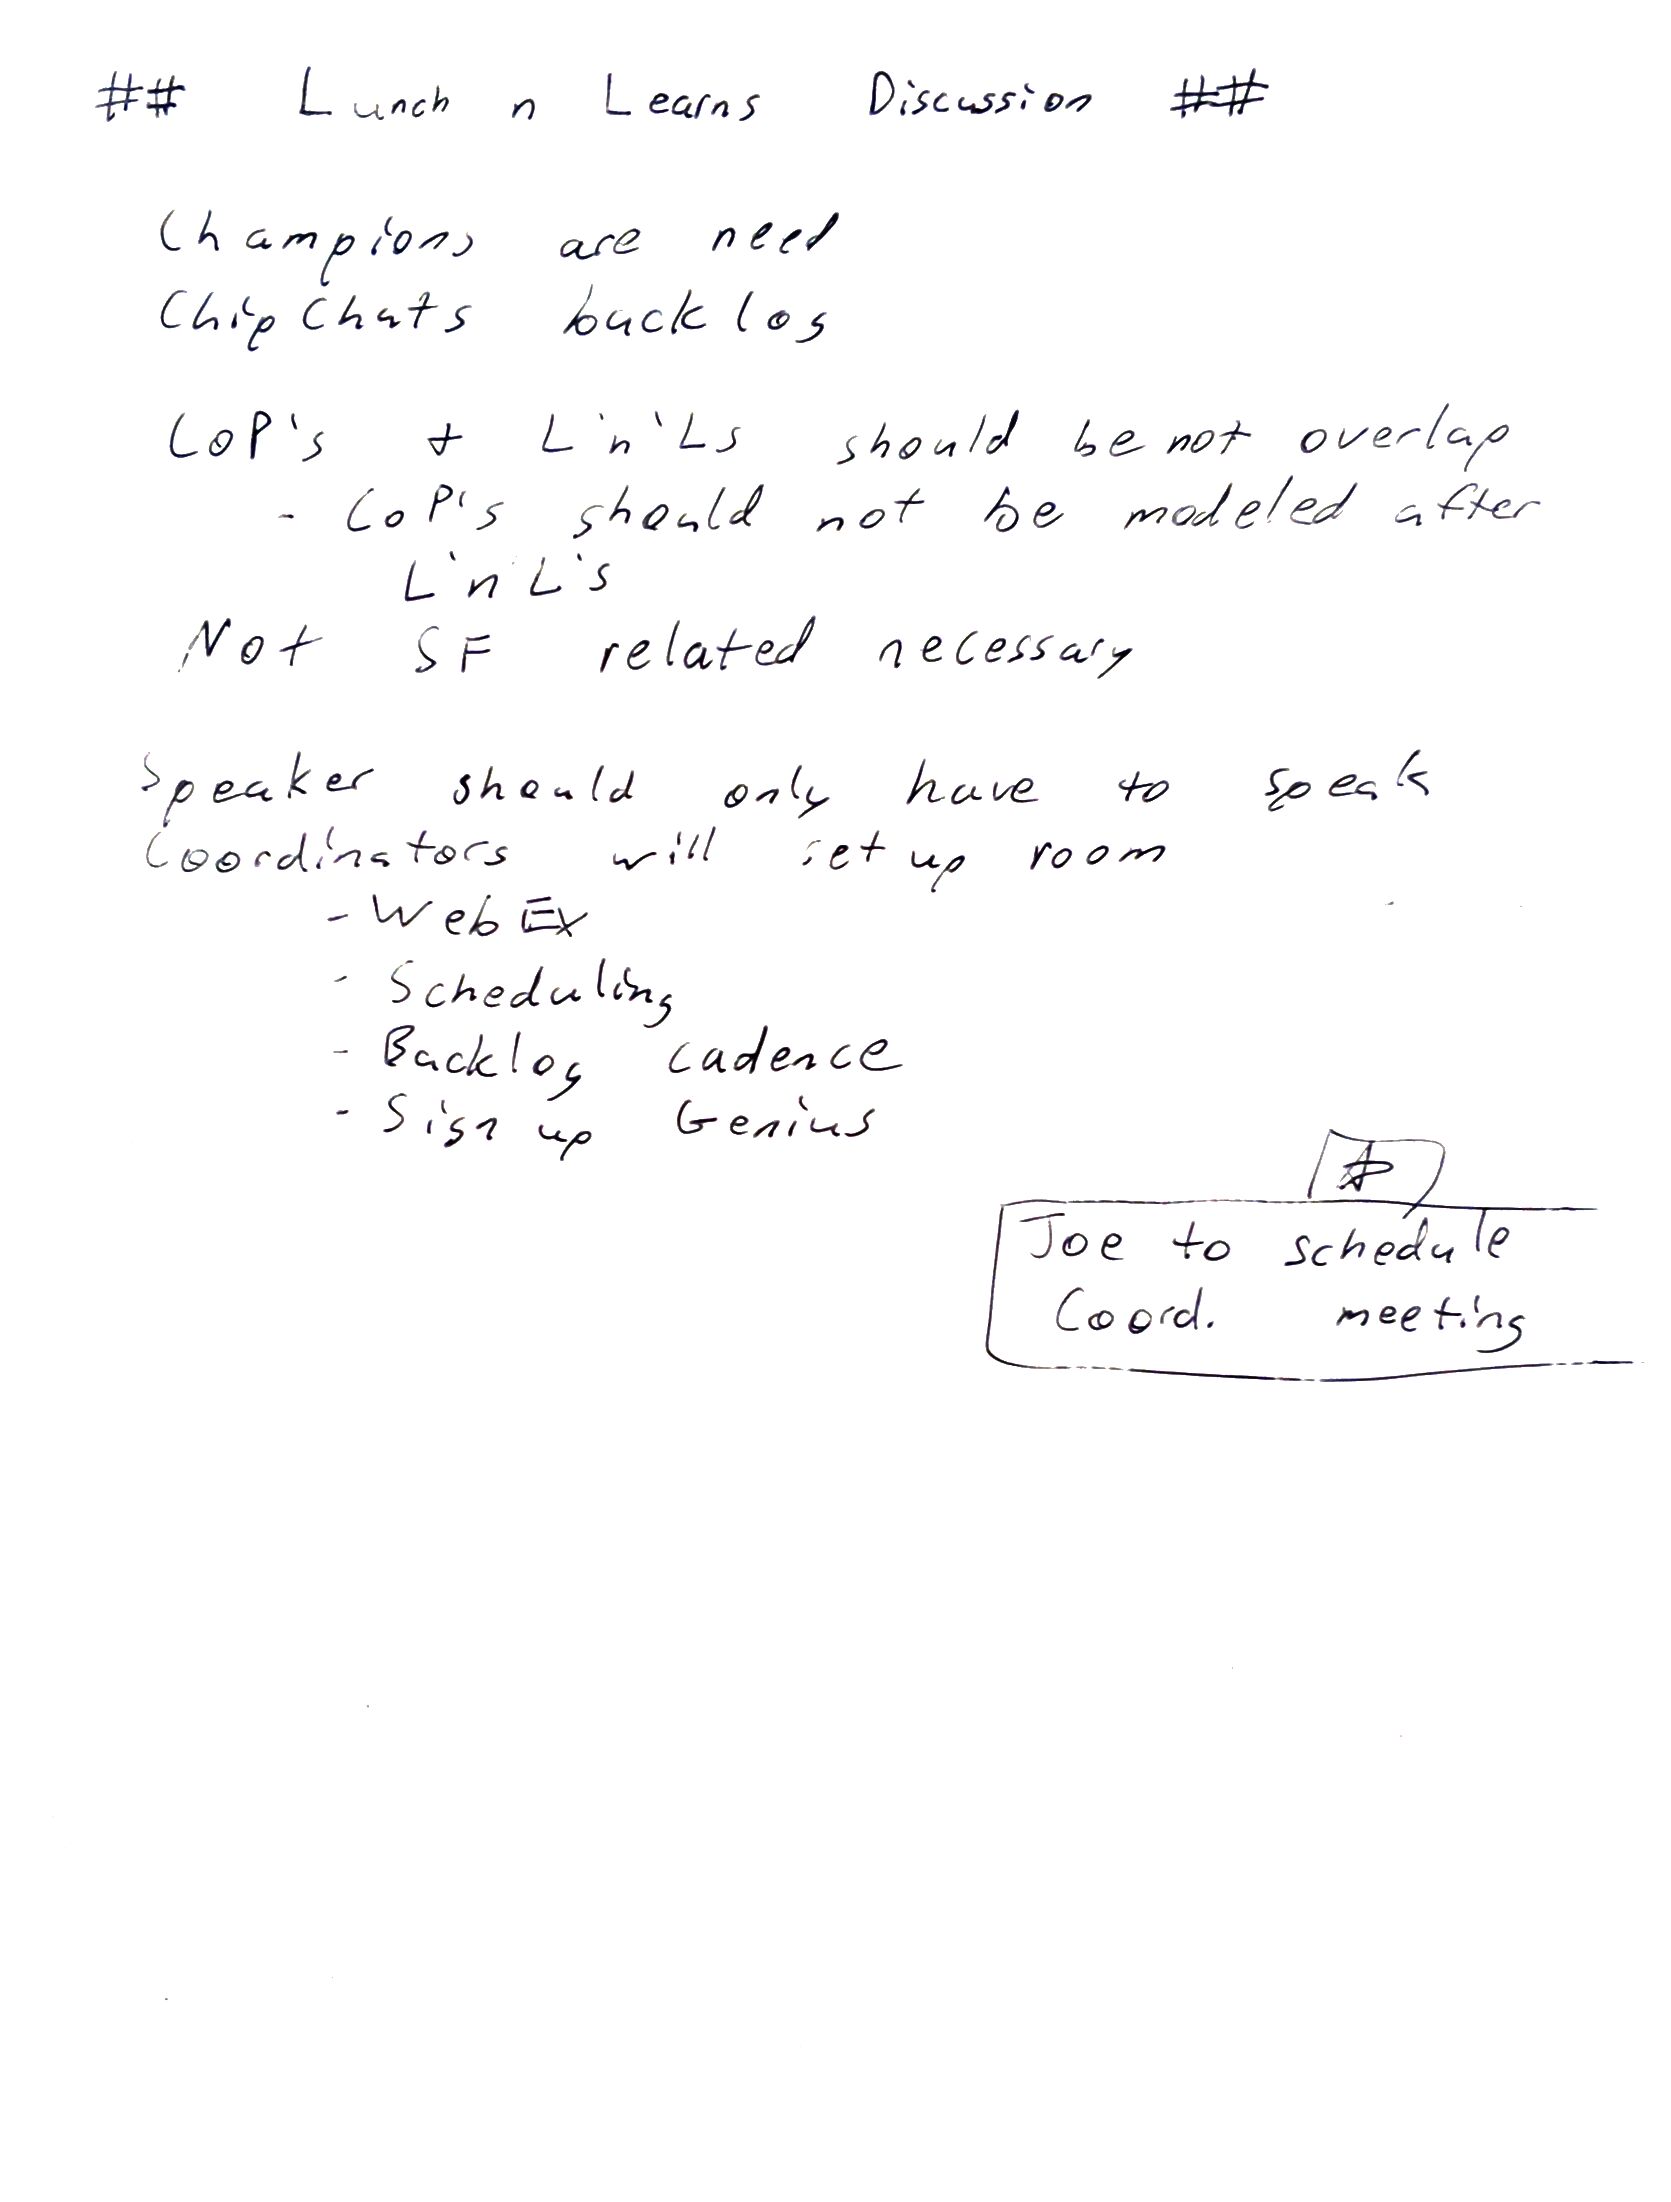 ## Lunch n Learns Discussion ##
Champions are need
ChipChats backlog
CoP's + L'n'Ls should be not overlap
- CoP's should not be modeled after
L'n L's
Not SF related necessary
Speaker should only have to speak
Coordinators will set up room
- WebEx
- Scheduling
- Backlog cadence
- Sign up Genius
Joe to schedule
Coord. meeting